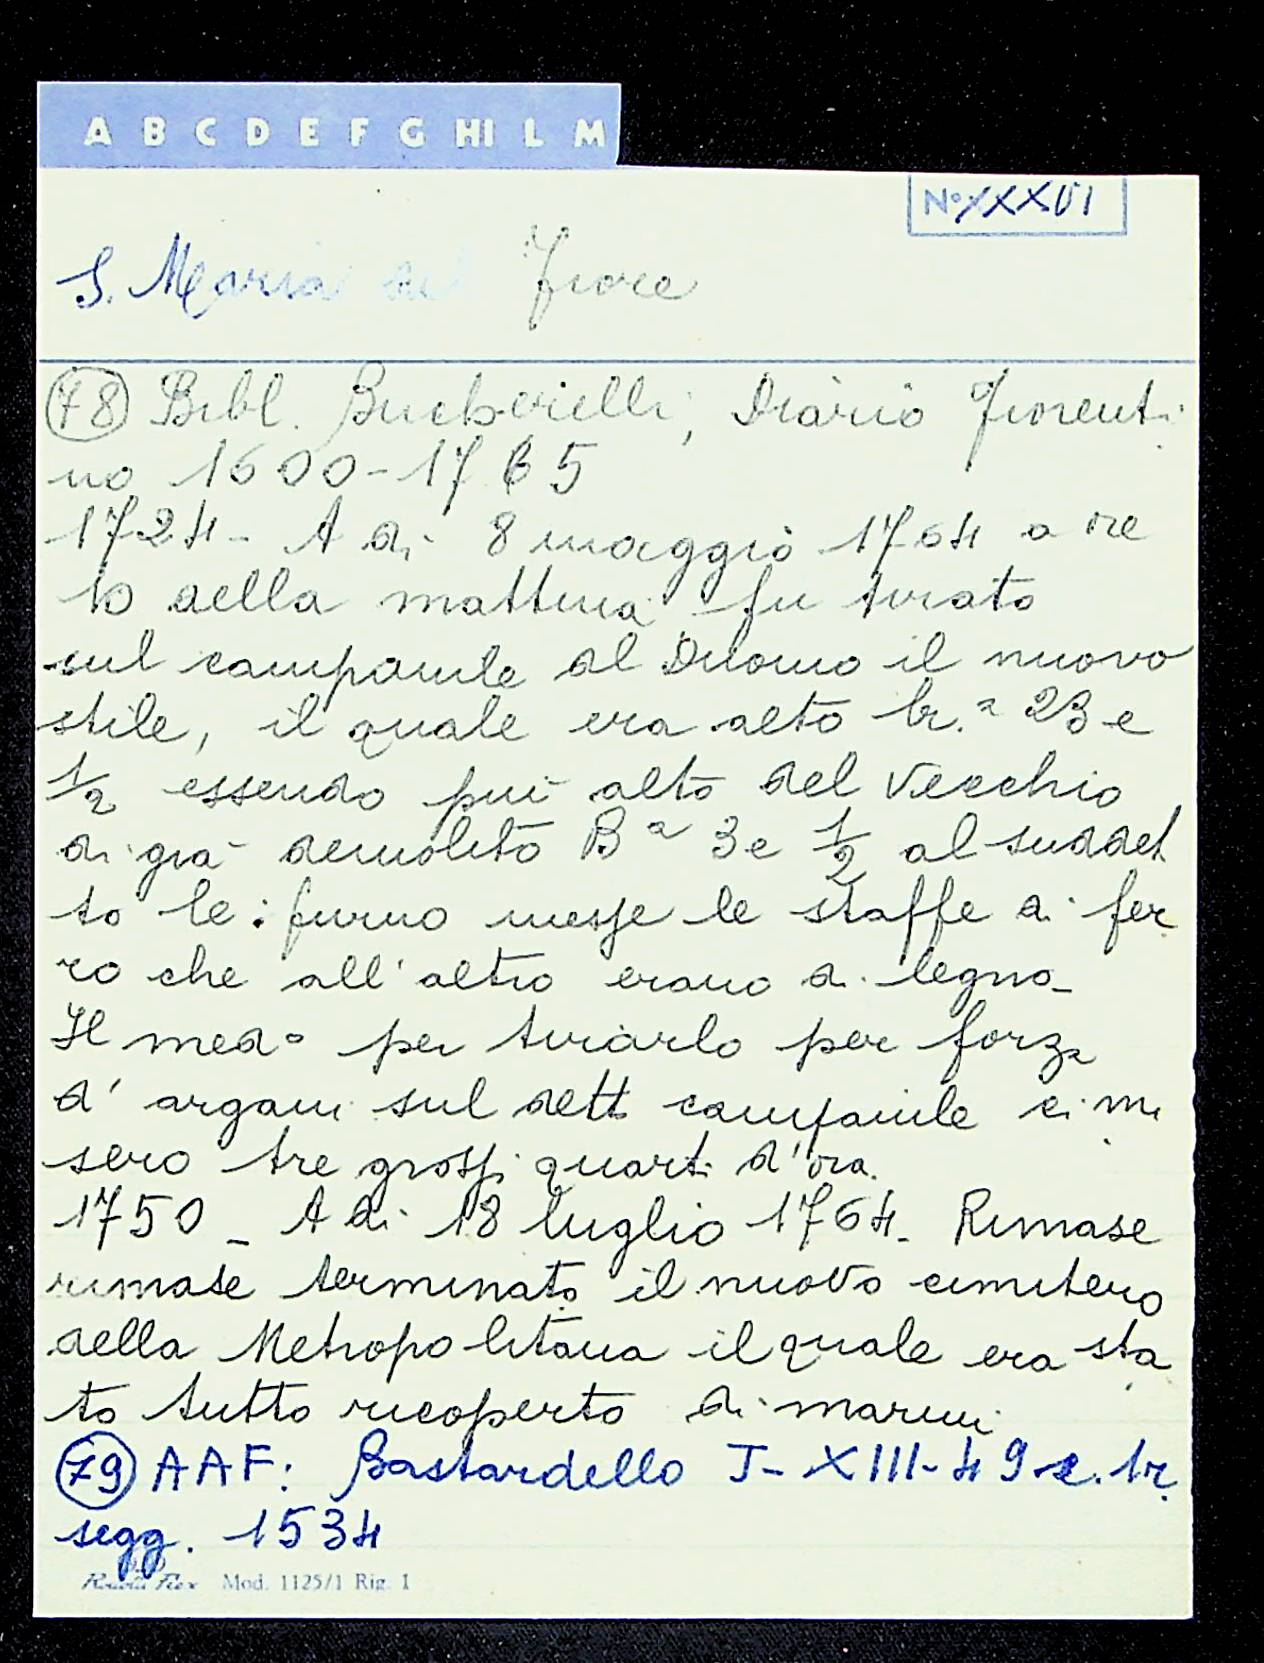 A B C D E F G HI L M
No XXXVI
S. Maria del Fiore
(78) Bibl. Bucherelli, Diario Fiorenti
no 1600-1765
1724 - A dì 8 maggio 1764 a ore
10 della mattina fu tirato
sul campanile del Duomo il nuovo
stile, il quale era alto br.a 23 e
1/2 essendo più alto del vecchio
di già demolito Ba 3 e 1/2 al suddet
to le: furno messe le staffe di fer
ro che all'altro erano di legno_
Il med° per tirarlo per forza
d'argani sul dett campanile ci mi
sero tre grossi quarti d'ora.
1750 - A dì 18 luglio 1764. Rimase
rimase terminato il nuovo cimitero
della Metropolitana il quale era sta
to tutto ricoperto di marmi
(79) AAF: Bastardello J-XIII-49 c. 1r.
segg. 1534
Mod. 1125/1 Rig. 1